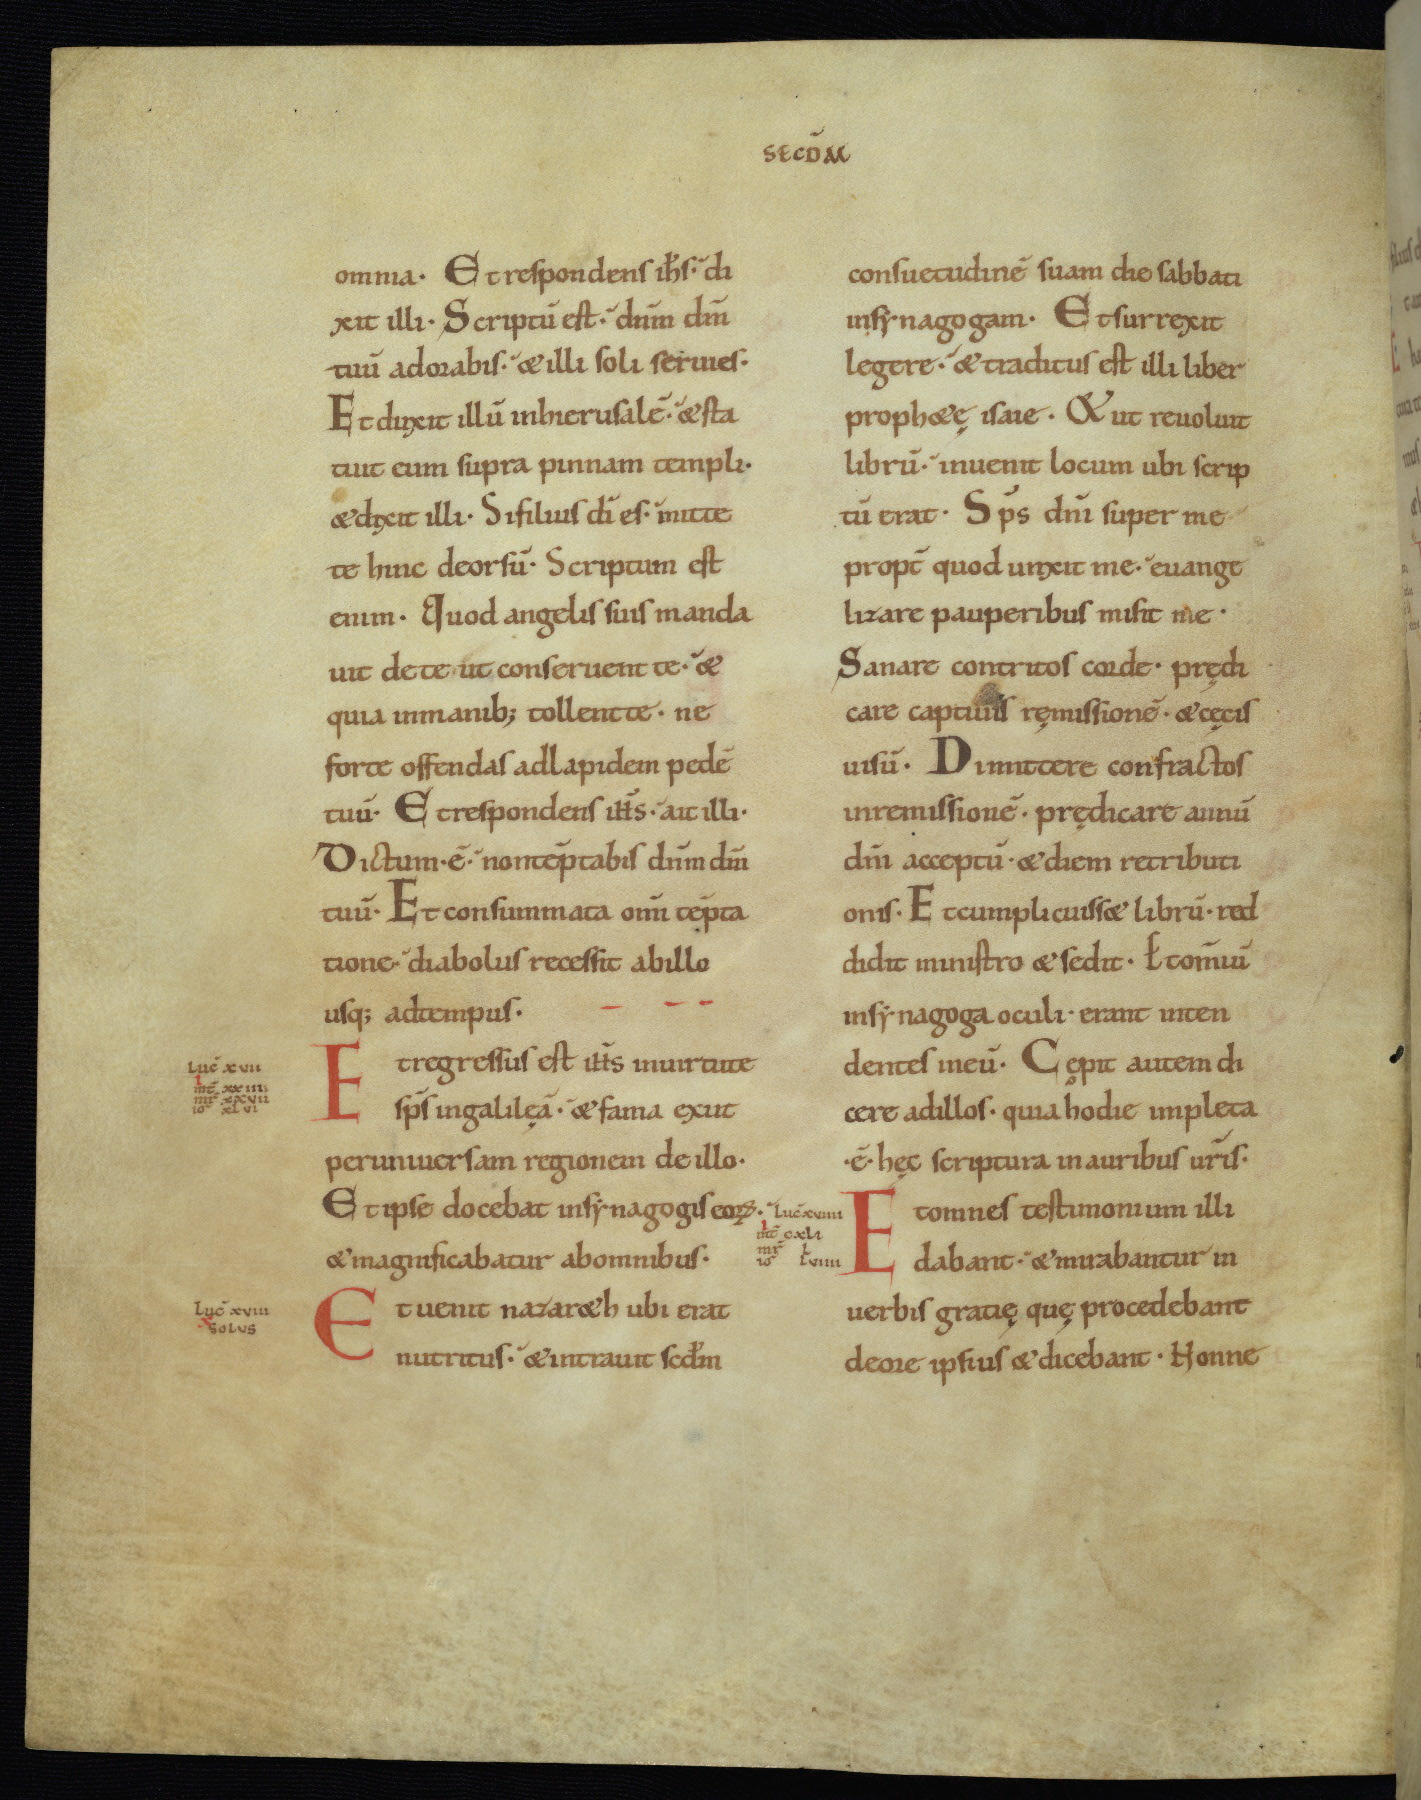 SECD̄M
omnia· Et respondens ih̄s·́ di
xit illi· Scriptū est·́ dn̄m dm̄
tuū adorabis·́ & illi soli seruies·
Et duxit illū inhierusalē·́ & sta
tuit eum supra pinnam templi·
& dixit illi· Si filius dī es·́ mitte
te hinc deorsū· Scriptum est
enim· Quod angelis suis manda
uit de te ut conseruent te·́ &
quia inmanib; tollent te· ne
forte offendas adlapidem pedē
tuū· Et respondens ih̄s·́ ait illi·
Dictum·ē·́ nontēptabis dn̄m dm̄
tuū· Et consummata om̄i tēpta
tione·́ diabolus recessit abillo
usq; adtempus·
Luc̄ xvii
mt̄ xxiii
mr̄ xxvii
io xlvi
Et regressus est ih̄s inuirtute
sp̄s ingalileā·́ & fama exiit
peruniuersam regionem de illo·
Et ipse docebat insẏnagogis eoꝝ·́
& magnificabatur abomnibus·
Luc̄ xviii
solus
Et uenit nazar&h ubi erat
nutritus·́ & intrauit scdm̄
consuetudinē suam die sabbati
insẏnagogam· Et surrexit
legere·́ & traditus est illi liber
proph&ę isaie· & ut reuoluit
librū·́ inuenit locum ubi scrip
tū erat· Sp̄s dn̄i super me
propt̄ quod unxit me·́ euange
lizare pauperibus misit me·
Sanare contritos corde· prędi
care captiuis ręmissionē· & cęcis
uisū· Dimittere confractos
inremissionē· prędicare annū
dn̄i acceptū· & diem retributi
onis· Et cumplicuiss& librū· red
didit ministro & sedit· Et om̄iū
insẏnagoga oculi· erant inten
dentes ineū· Cępit autem di
cere adillos· quia hodie impleta
·ē· hęc scriptura in auribus ur̄is·
Luc̄ xviiii
mt̄ cxli
mr̄ l
io lviiii
Et omnes testimonium illi
dabant·́ & mirabantur in
uerbis gratię quę procedebant
deore ipsius & dicebant· Nonne